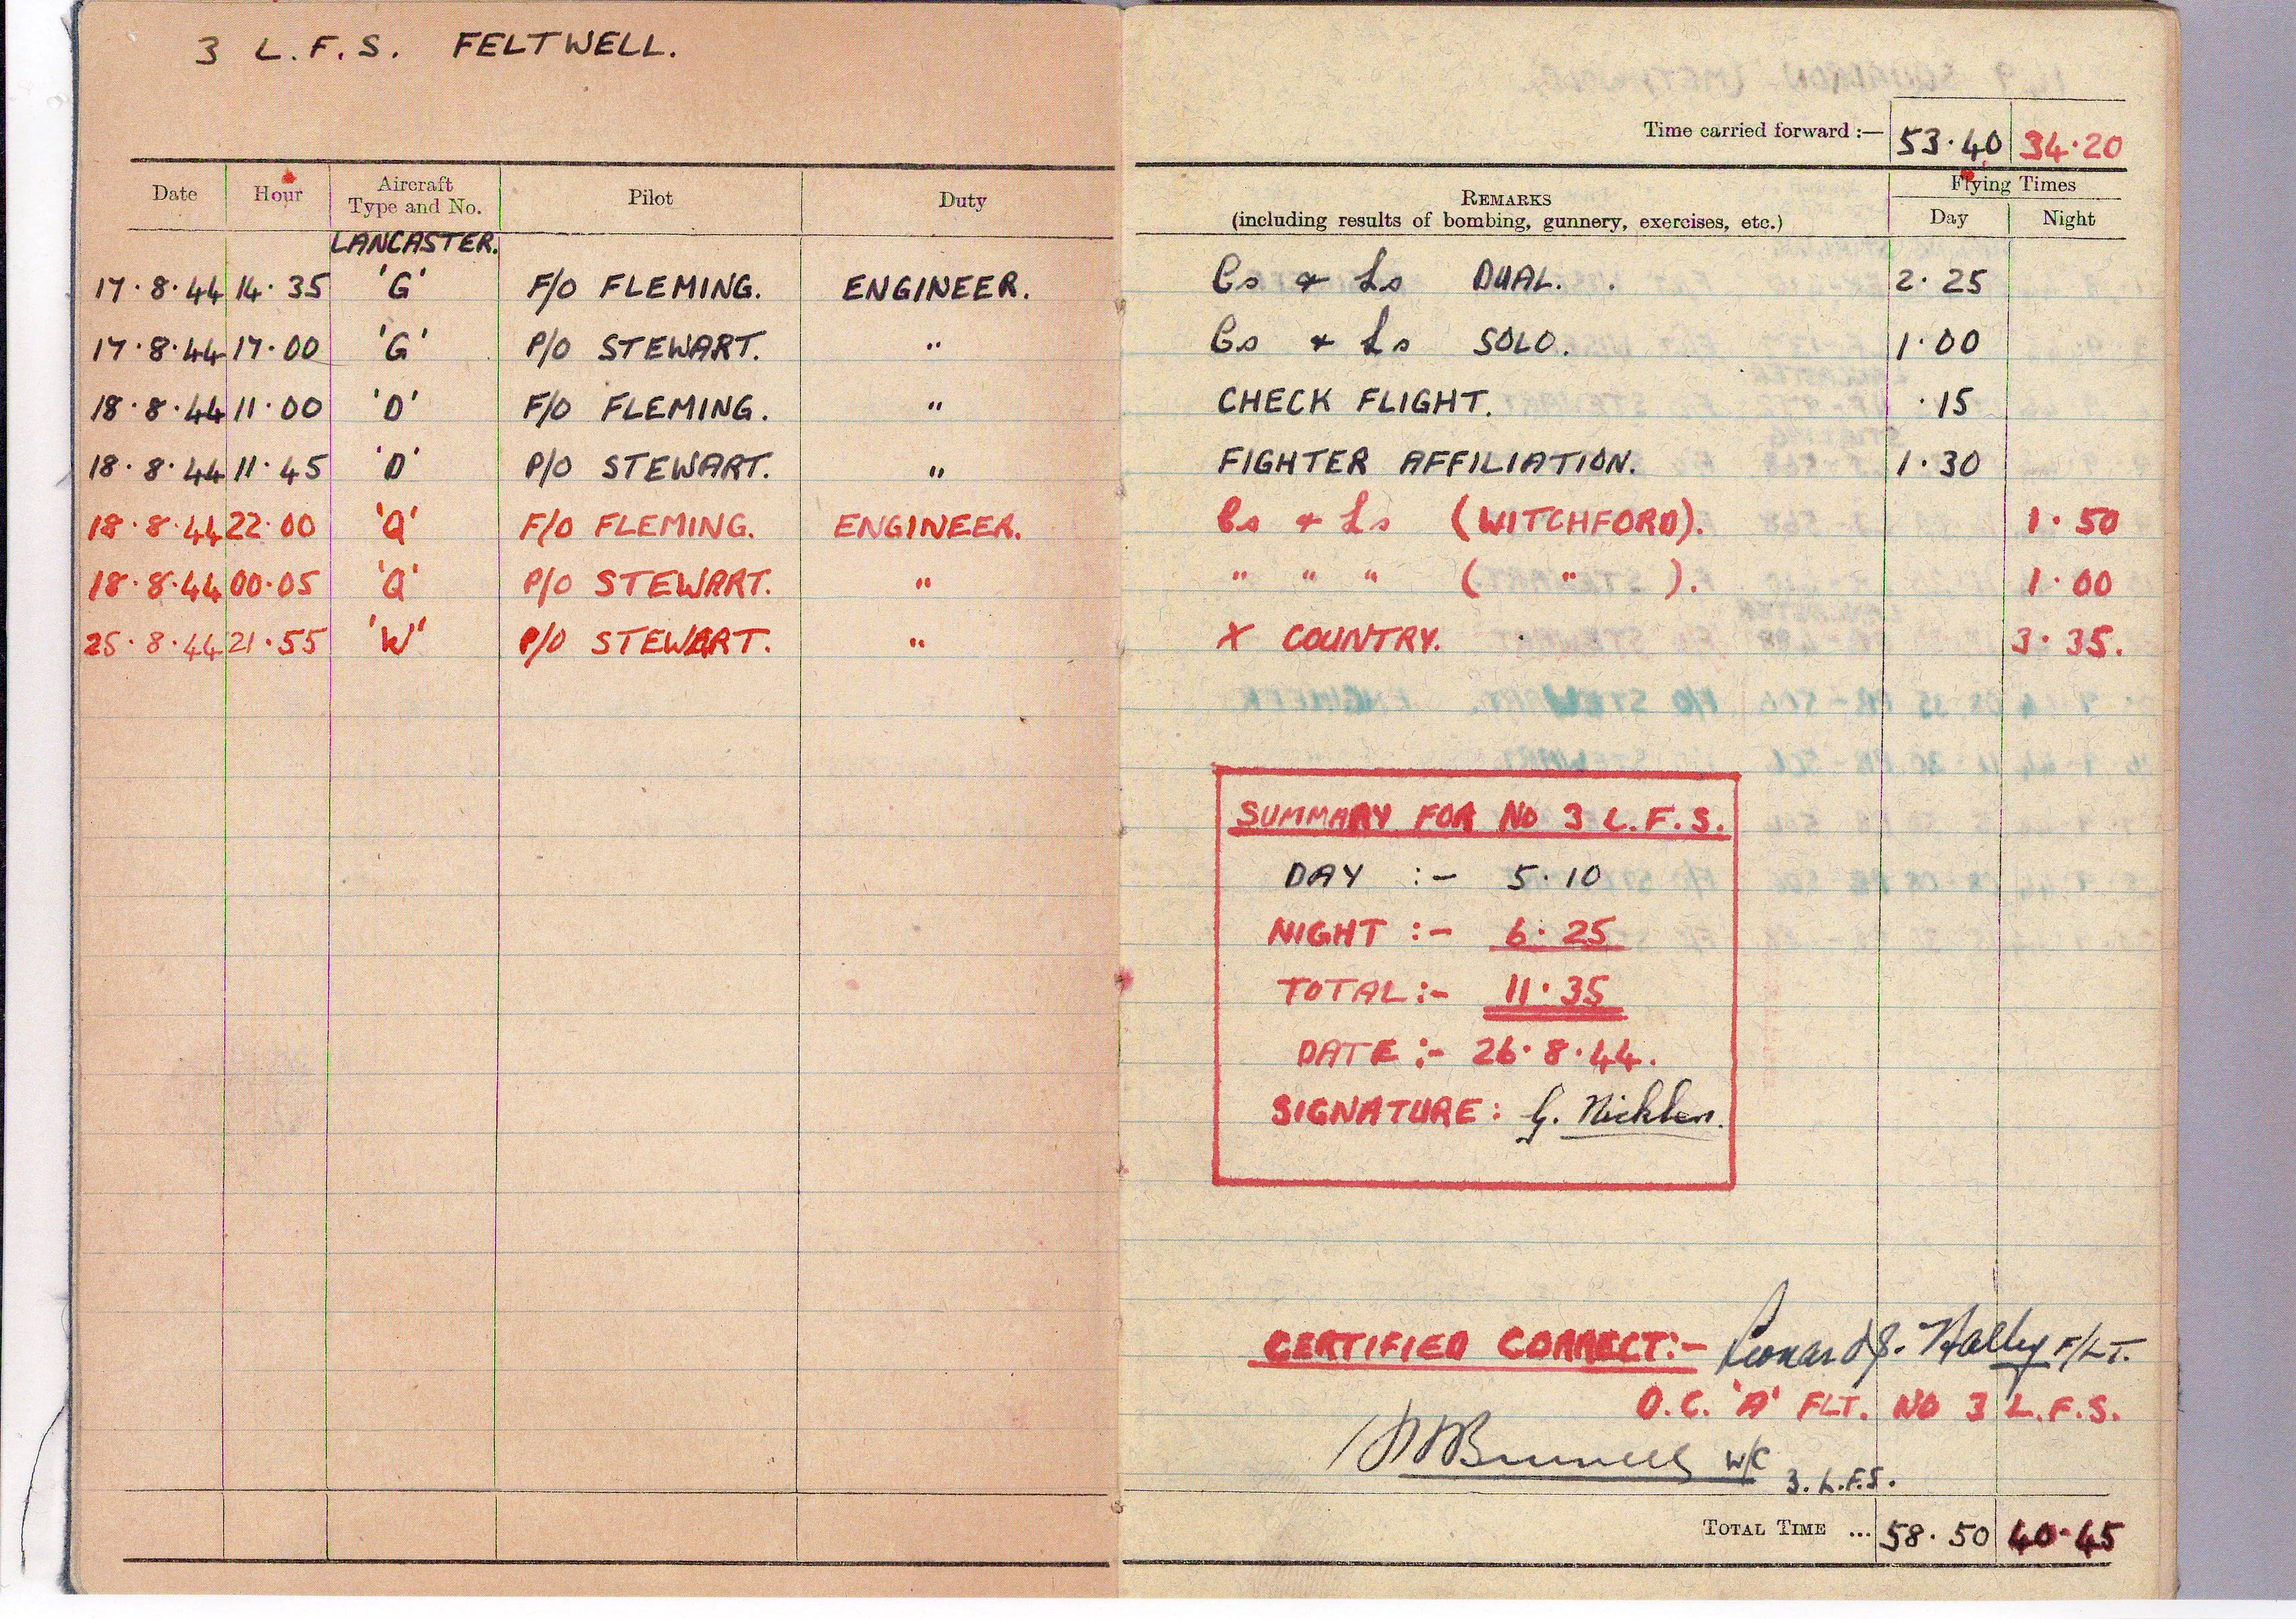 3 L.F.S. FELTWELL.
Time carried forward :— 53·40 34·20
Date Hour Aircraft Type and No. Pilot Duty REMARKS (including results of bombing, gunnery, exercises, etc.) Flying Times Day Night
LANCASTER.
17·8·44 14·35 'G' F/O FLEMING. ENGINEER. Cs & Ls DUAL. 2·25
17·8·44 17·00 'G' P/O STEWART. " Cs & Ls SOLO. 1·00
18·8·44 11·00 'D' F/O FLEMING. " CHECK FLIGHT. ·15
18·8·44 11·45 'D' P/O STEWART. " FIGHTER AFFILIATION. 1·30
18·8·44 22·00 'Q' F/O FLEMING. ENGINEER. Cs & Ls (WITCHFORD). 1·50
18·8·44 00·05 'Q' P/O STEWART. " " " " ( " ). 1·00
25·8·44 21·55 'W' P/O STEWART. " X COUNTRY. 3·35.
SUMMARY FOR No 3 L.F.S.
DAY :- 5·10
NIGHT :- 6:25
TOTAL :- 11·35
DATE :- 26·8·44.
SIGNATURE: G. Nicklen.
CERTIFIED CORRECT:- Leonard J. Halley F/LT.
O.C. 'A' FLT. No 3 L.F.S.
W/C
3. L.F.S.
TOTAL TIME ... 58·50 40·45